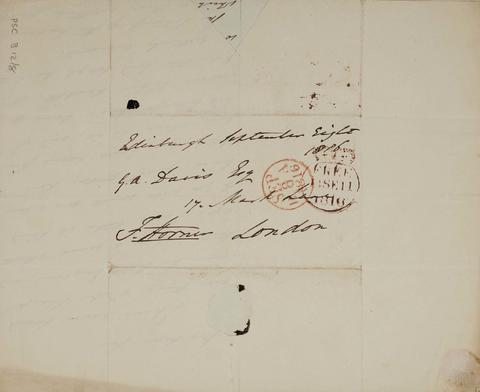 PSC B 12/8
Edinburgh September Eight
1816
G.A. Davis Esq
17. Mark Lane
F. Horner London
FREE
11SE11
1816